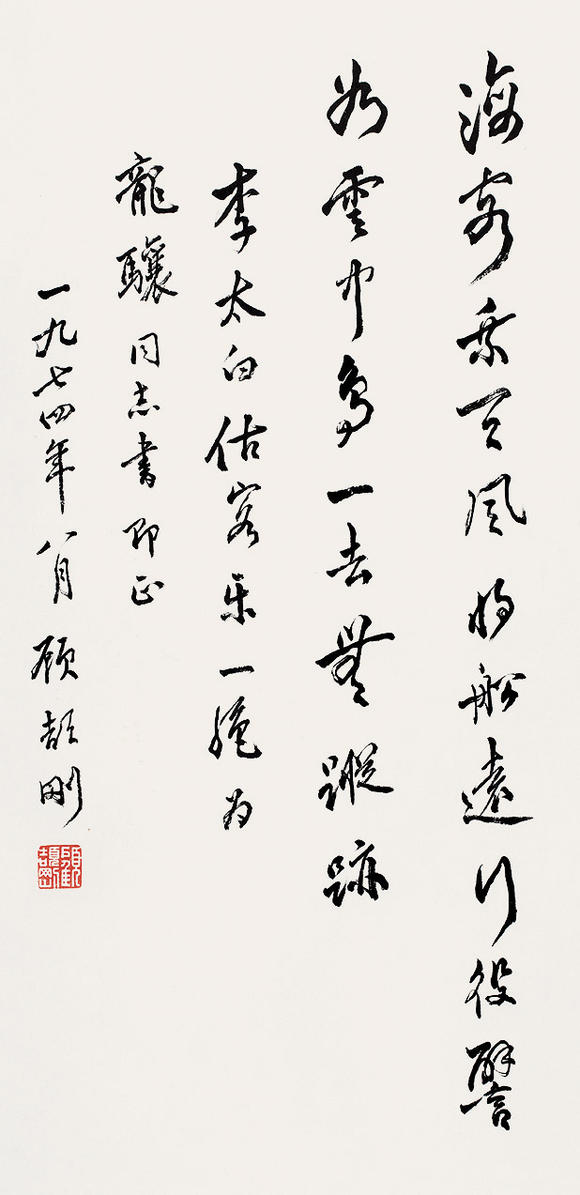 海客乘天風將船遠行役譬
如雲中鳥一去無蹤跡
李太白估客樂一絕為
龍驤同志書即正
一九七四年八月顧頡剛
顧頡剛